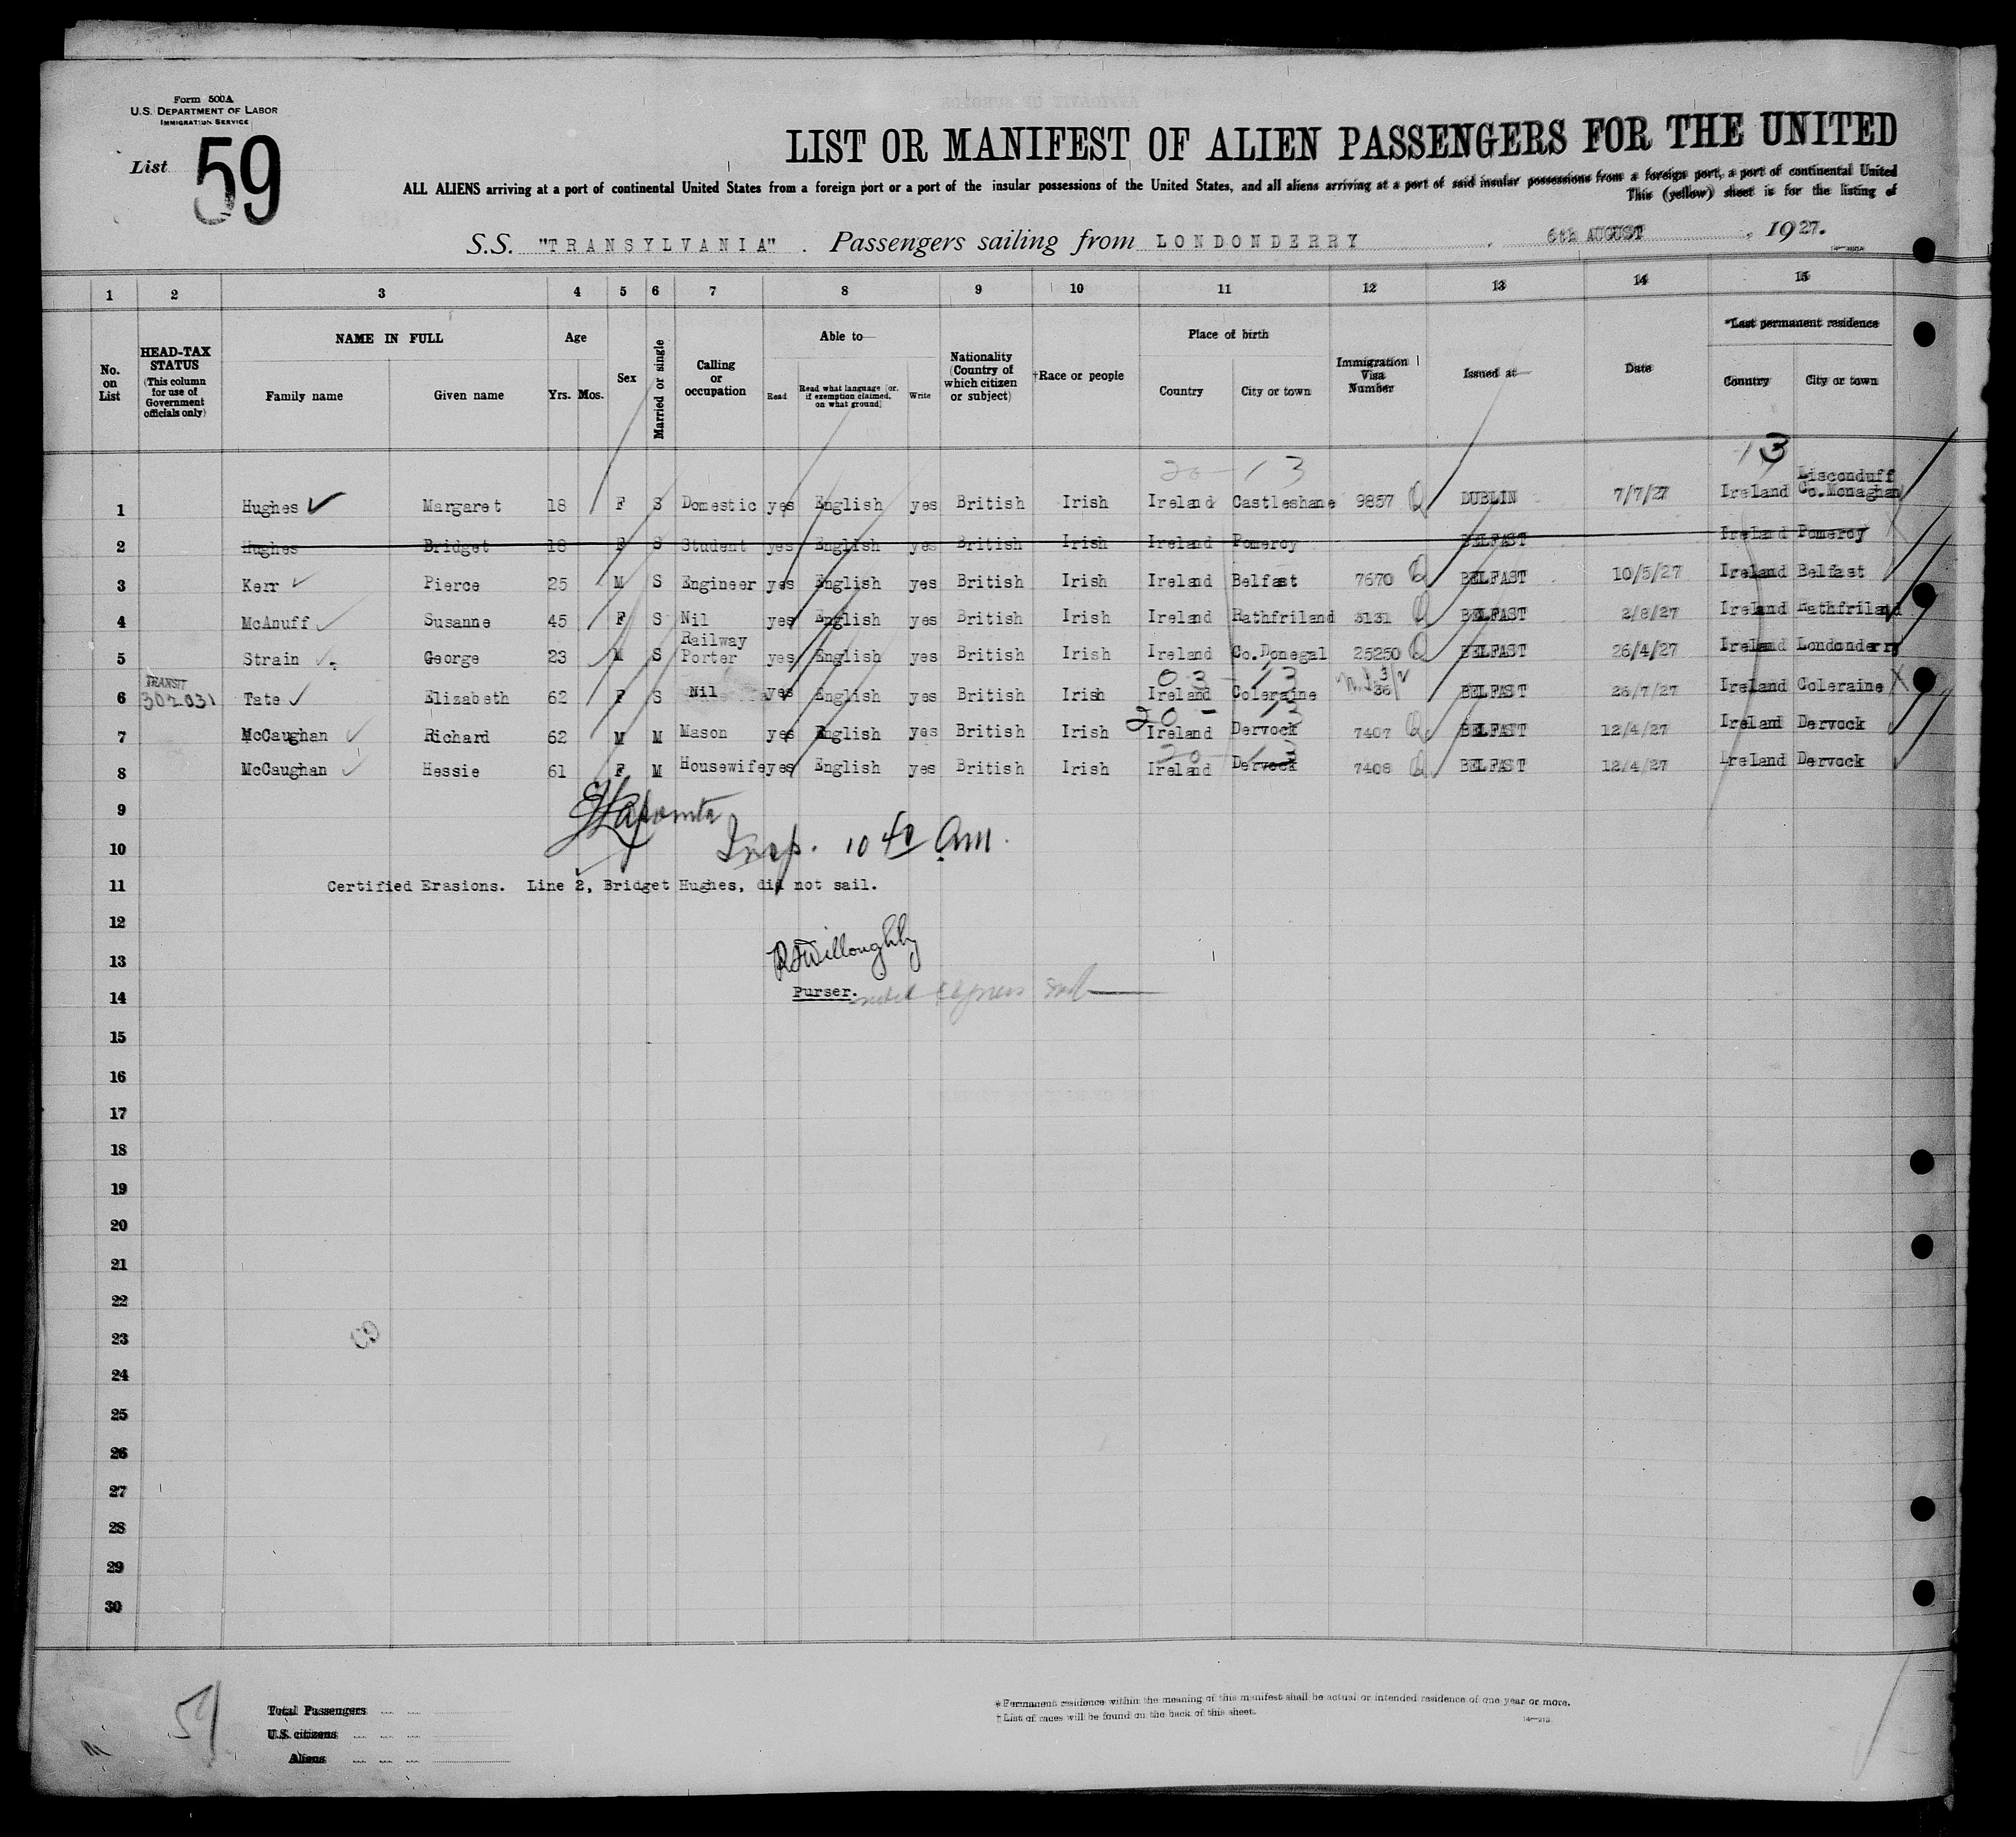 Form 500A
U.S. DEPARTMENT OF LABOR
IMMIGRATION SERVICE
List 59
LIST OR MANIFEST OF ALIEN PASSENGERS FOR THE UNITED
ALL ALIENS arriving at a port of continental United States from a foreign port or a port of the insular possessions of the United States, and all aliens arriving at a port of said insular possessions from a foreign port, a port of continental United
This (yellow) sheet is for the listing of
S.S. "TRANSYLVANIA". Passengers sailing from LONDONDERRY, 6th AUGUST, 1927.
1 2 3 4 5 6 7 8 9 10 11 12 13 14 15
No. on List
HEAD-TAX STATUS (This column for use of Government officials only)
NAME IN FULL Family name Given name
Age Yrs. Mos.
Sex
Married or single
Calling or occupation
Able to Read Read what language (or, if exemption claimed, on what ground) Write
Nationality (Country of which citizen or subject)
†Race or people
Place of birth Country City or town
Immigration Visa Number
Issued at
Date
*Last permanent residence Country City or town
20 - 13 13
1 Hughes Margaret 18 F S Domestic yes English yes British Irish Ireland Castleshane 9857 Q DUBLIN 7/7/27 Ireland Lisconduff Co.Monaghan
2 Hughes Bridget 18 F S Student yes English yes British Irish Ireland Pomeroy BELFAST Ireland Pomeroy
3 Kerr Pierce 25 M S Engineer yes English yes British Irish Ireland Belfast 7670 Q BELFAST 10/5/27 Ireland Belfast
4 McAnuff Susanne 45 F S Nil yes English yes British Irish Ireland Rathfriland 3131 Q BELFAST 2/8/27 Ireland Rathfriland
5 Strain George 23 M S Railway Porter yes English yes British Irish Ireland Co.Donegal 25250 Q BELFAST 26/4/27 Ireland Londonderry
03 - 13
6 TRANSIT 302031 Tate Elizabeth 62 F S Nil yes English yes British Irish Ireland Coleraine 36 BELFAST 26/7/27 Ireland Coleraine
20 - 13
7 McCaughan Richard 62 M M Mason yes English yes British Irish Ireland Dervock 7407 Q BELFAST 12/4/27 Ireland Dervock
20 - 13
8 McCaughan Hessie 61 F M Housewife yes English yes British Irish Ireland Dervock 7408 Q BELFAST 12/4/27 Ireland Dervock
9
10 Insp. 10 40 am.
11 Certified Erasions. Line 2, Bridget Hughes, did not sail.
12
13 Willoughby
14 Purser.
15
16
17
18
19
20
21
22
23
24
25
26
27
28
29
30
59
Total Passengers
U.S. citizens
Aliens
*Permanent residence within the meaning of this manifest shall be actual or intended residence of one year or more.
†List of races will be found on the back of this sheet.